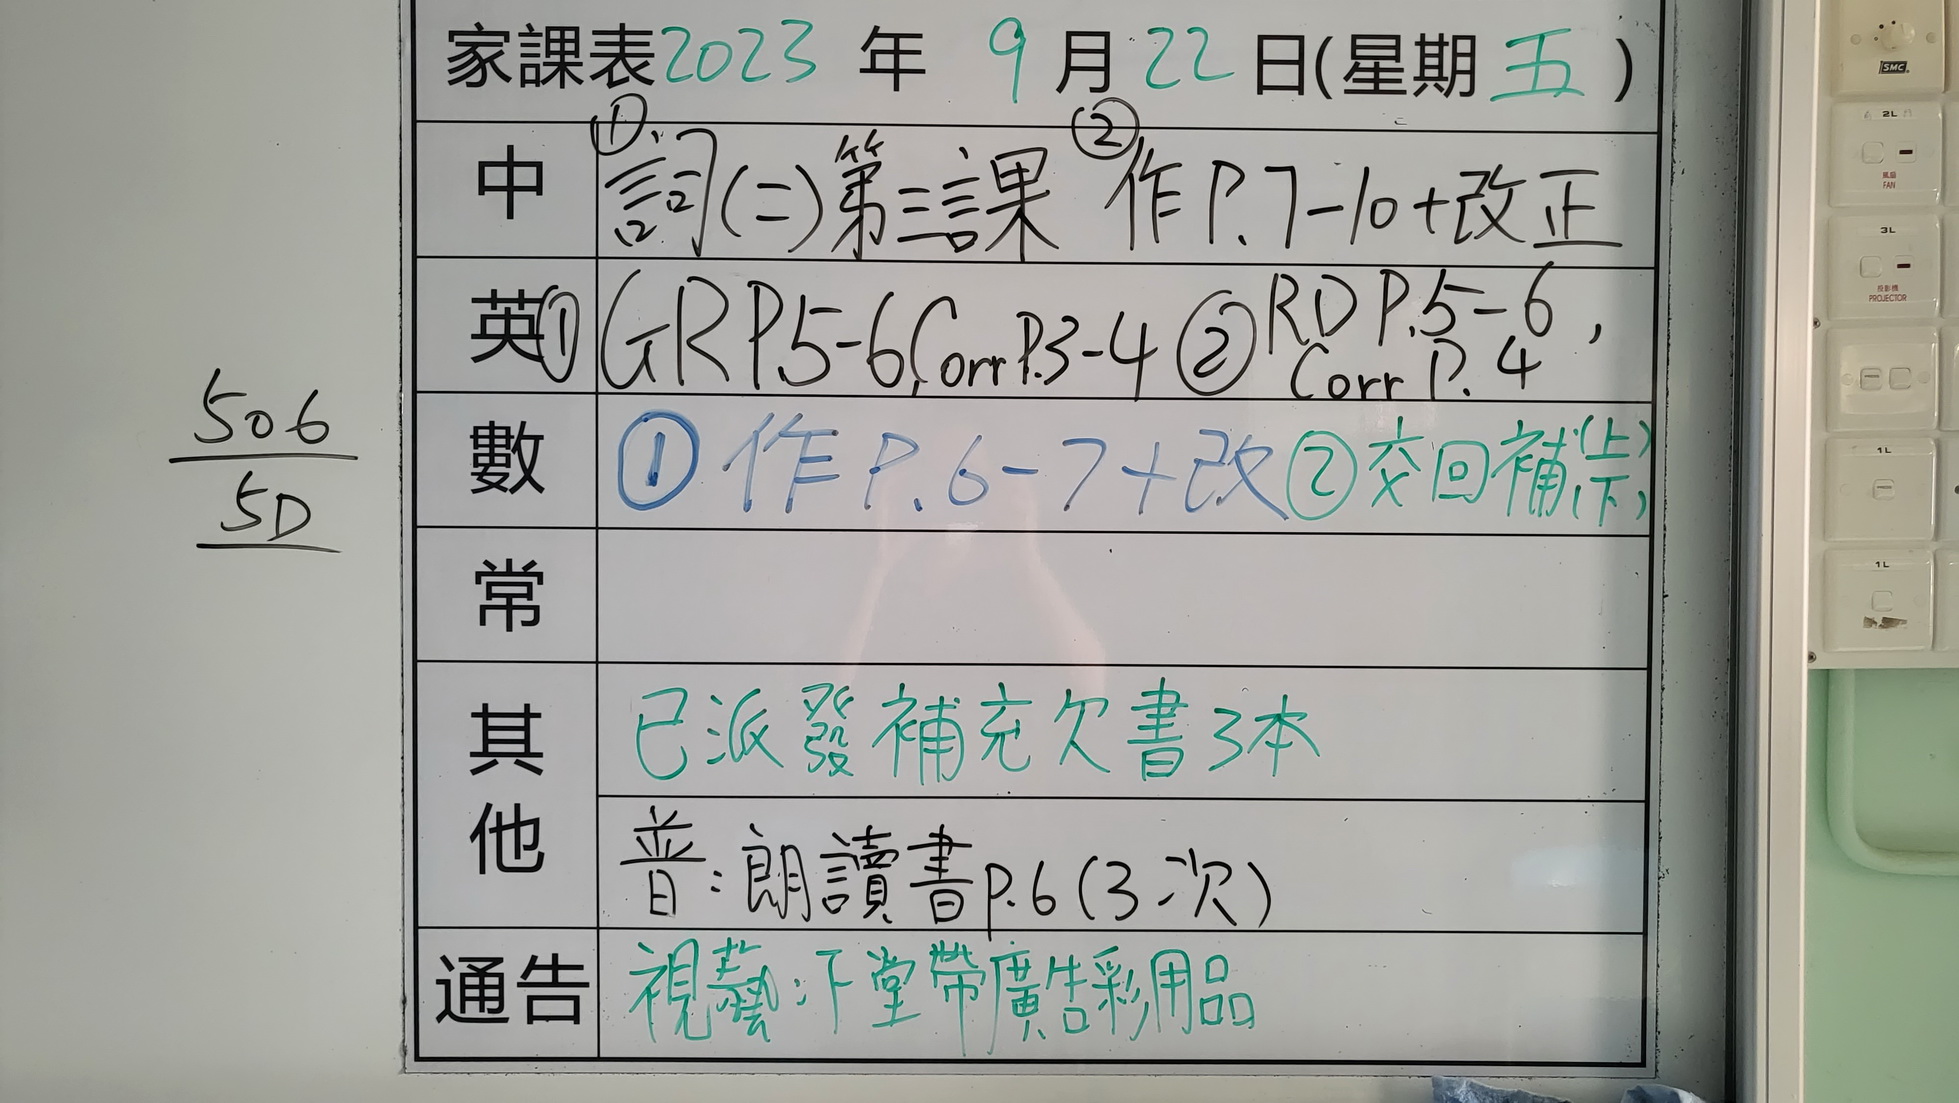 家課表2023 年 9 月 22 日(星期 五 )
中 ① 詞(二)第三課 ② 作P.7-10+改正
英 ① GR P.5-6, Corr P.3-4 ② RD P.5-6,
Corr P.4
數 ① 作P.6-7+改 ② 交回補(上)
(下)
常
其他 已派發補充欠書3本
普:朗讀書p.6(3次)
通告 視藝:下堂帶廣告彩用品
506
5D
SMC
2L
風扇
FAN
3L
投影機
PROJECTOR
1L
1L